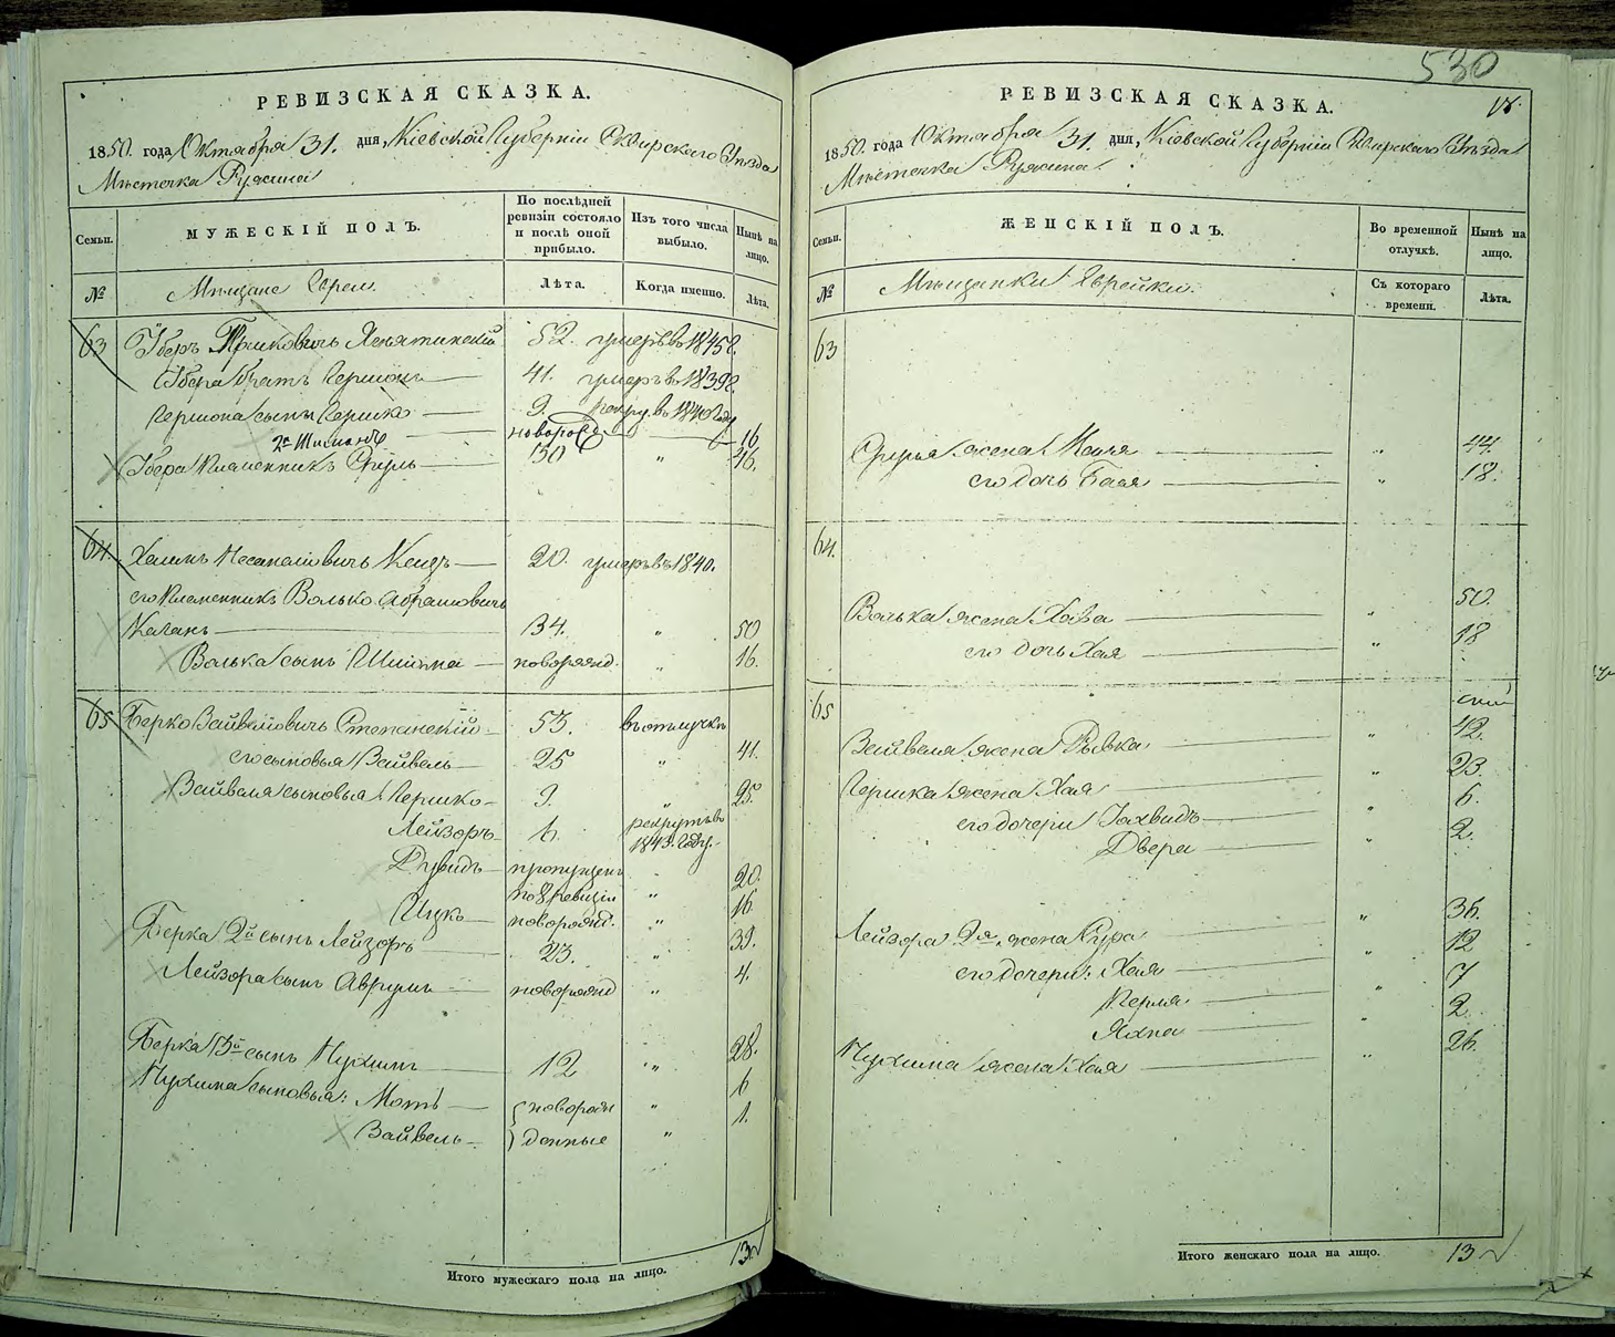 РЕВИЗСКАЯ СКАЗКА.
1850. года Октября 31. дня, Кіевской Губерніи Сквирскаго Уѣзда
Мѣстечка Ружина
Семьи.
МУЖЕСКІЙ ПОЛЪ.
По послѣдней ревизіи состояло и послѣ оной прибыло.
Изъ того числа выбыло.
Нынѣ на лицо.
№
Мѣщане Евреи.
Лѣта.
Когда именно.
Лѣта.
63 52. умеръ въ 1845г.
братъ Гершонъ 41. умеръ въ 1839г.
Гершона сынъ Гершко 9. рекру. въ 1840 году
2й новорож 16
племенникъ Сруль 30 " 46.
64. 20. умеръ въ 1840.
его племенникъ Волько Абрамовичъ
Каганъ 34. " 50
Волька сынъ новорожд. " 16.
65 Берко Вайвелевичъ Степанскій 53. въ отлучкѣ
его сыновья Вайвель 25 " 41.
Вайвеля сыновья Гершко 9. " 25.
Лейзоръ 6. рекрутъ въ 1843. году.
Дувидъ пропущенъ по 8 ревизіи " 20.
Ицко новорожд. " 16
Берка 2й сынъ Лейзоръ 23. " 39.
Лейзора сынъ Аврумъ новорожд " 4.
Берка 3й сынъ Нухимъ 12 " 28.
Нухима сыновья: Мотъ новорож " 6
Вайвель денные " 1.
Итого мужескаго пола на лицо. 13
530
РЕВИЗСКАЯ СКАЗКА.
1850. года Октября 31. дня, Кіевской Губерніи Сквирскаго Уѣзда
Мѣстечка Ружина.
Семьи.
ЖЕНСКІЙ ПОЛЪ.
Во временной отлучкѣ.
Нынѣ на лицо.
№
Мѣщанки Еврейки.
Съ котораго времени.
Лѣта.
63
Сруля жена " 44.
его дочь Бася " 18.
64.
Волька жена Хава " 50.
его дочь Хая " 18
65
Вайвеля жена Рывка " 42.
Гершка жена Хая " 23.
его дочери " 6.
Двера " 2.
Лейзора 2я жена Сура " 36.
его дочери: Хая " 12
Перля " 7
" 2.
Нухима жена Хая " 26.
Итого женскаго пола на лицо. 13